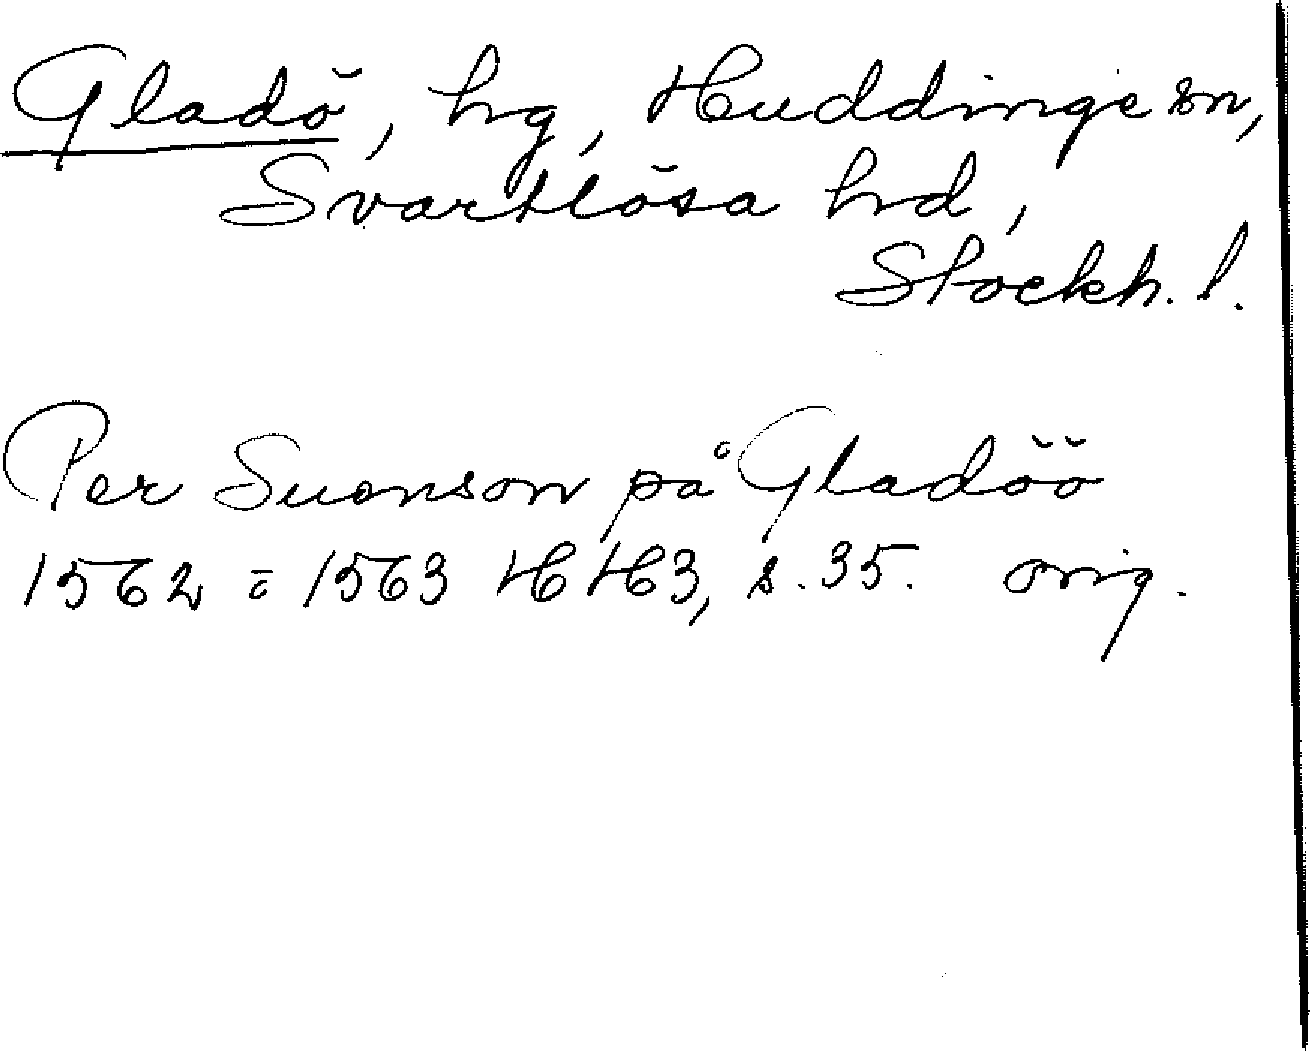 Gladö, hg, Huddinge sn,
Svartlösa hd,
Stockh. l.
Per Suenson på Gladöö
1562 ö 1563 HH3, s. 35. orig.